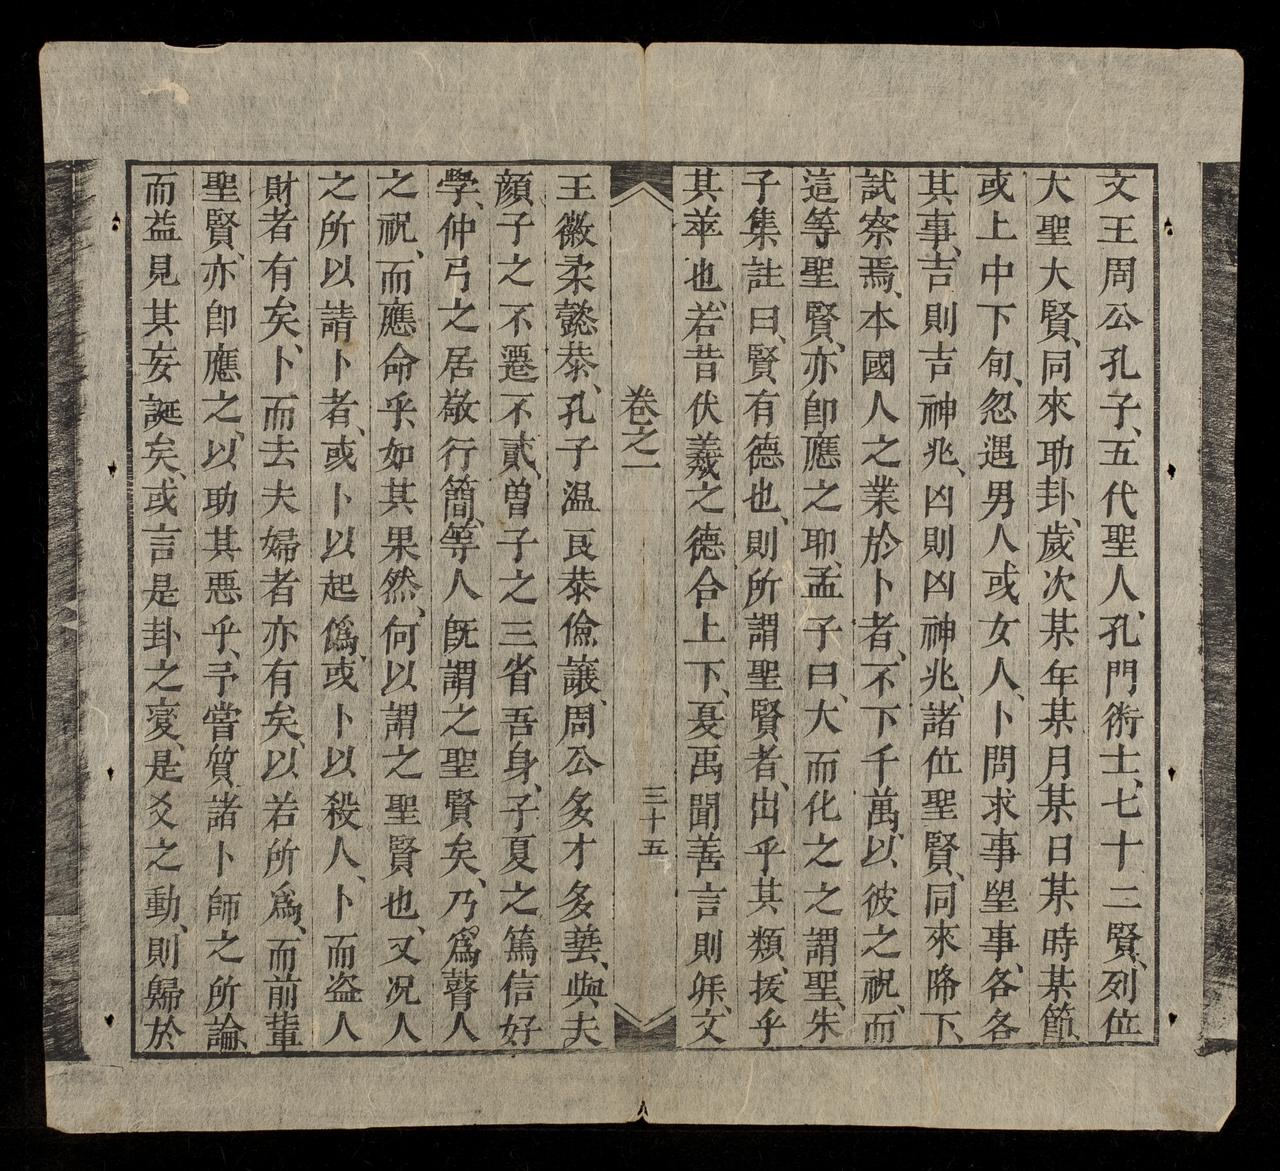 文王周公孔子、五代聖人、孔門術士、七十二賢、列位
大聖大賢、同來助卦、歲次某年某月某日某時某節、
或上中下旬、忽遇男人或女人、卜問求事望事、各各
其事、吉則吉神兆、凶則凶神兆、諸位聖賢、同來降下、
試察焉、本國人之業於卜者、不下千萬、以彼之祝、而
這等聖賢、亦卽應之耶、孟子曰、大而化之之謂聖、朱
子集註曰、賢有德也、則所謂聖賢者、出乎其類、拔乎
其萃也、若昔伏羲之德合上下、夏禹聞善言則拜、文
卷之一
三十五
王徽柔懿恭、孔子温良恭儉讓、周公多才多藝、與夫
顔子之不遷不貳、曾子之三省吾身、子夏之篤信好
學、仲弓之居敬行簡、等人旣謂之聖賢矣、乃爲瞽人
之祝、而應命乎、如其果然、何以謂之聖賢也、又况人
之所以請卜者、或卜以起僞、或卜以殺人、卜而盜人
財者有矣、卜而去夫婦者亦有矣、以若所爲、而前輩
聖賢、亦卽應之、以助其惡乎、予嘗質諸卜師之所論、
而益見其妄誕矣、或言是卦之變、是爻之動、則歸於